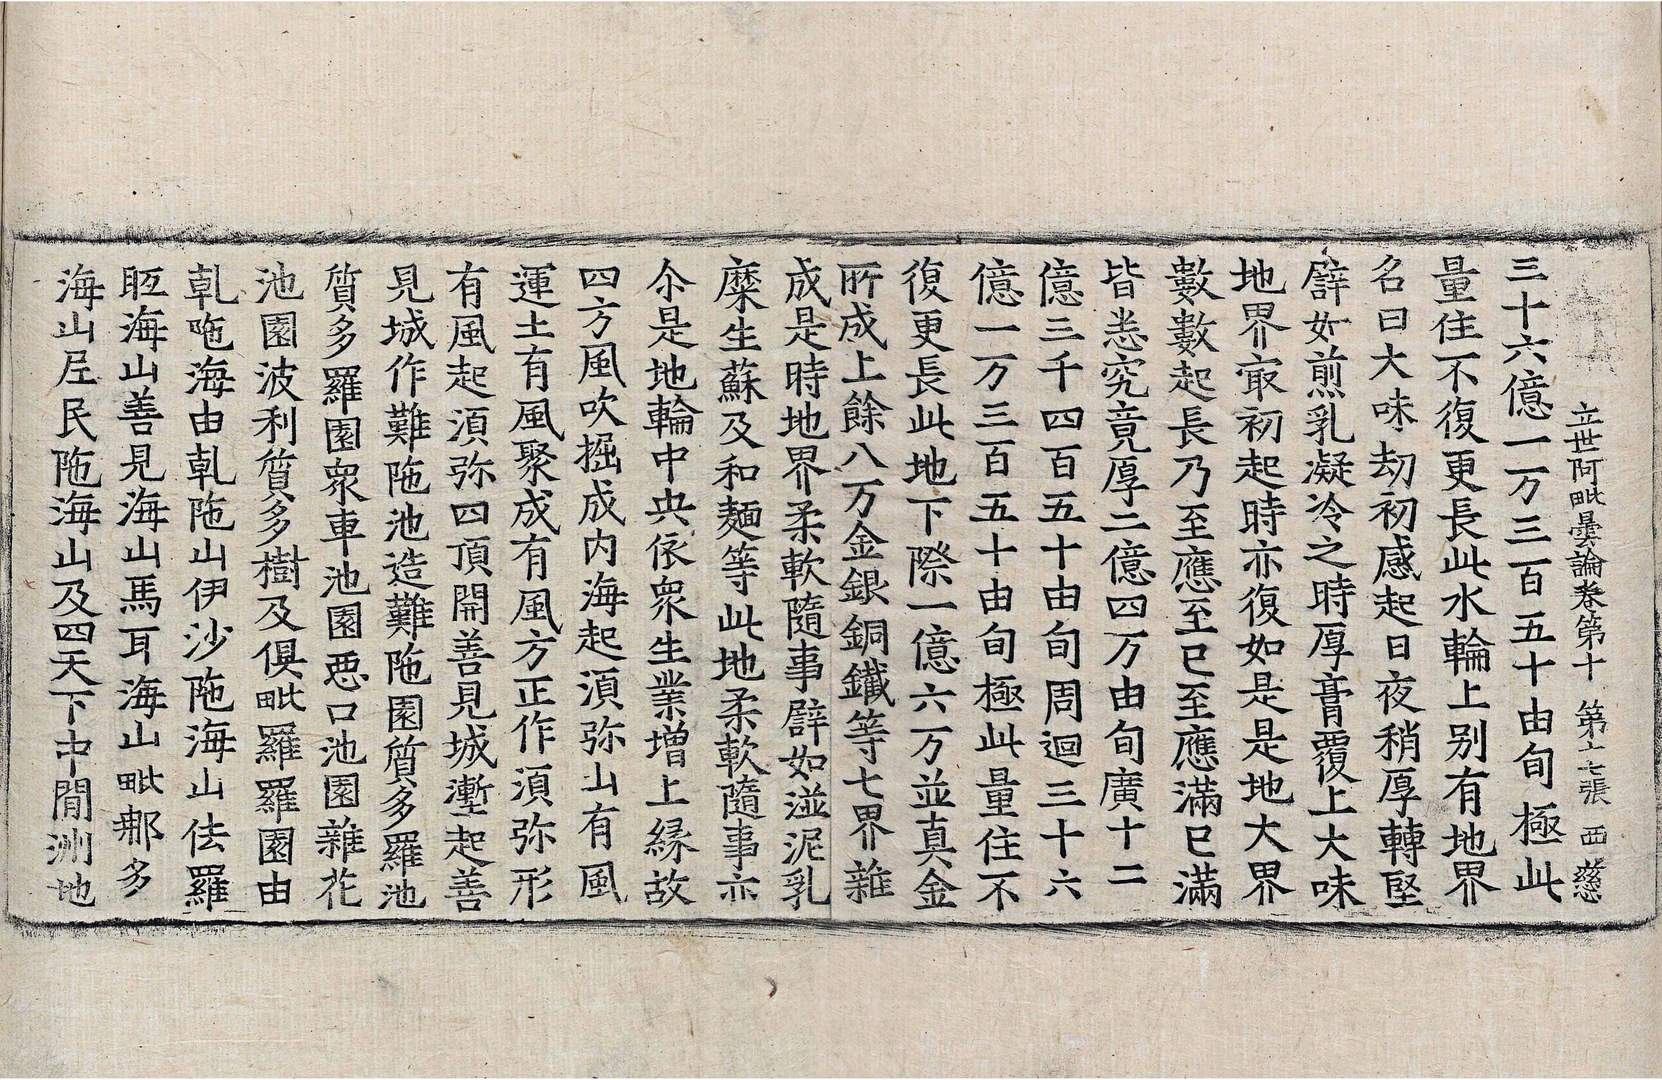 立世阿毗曇論卷第十 第十七張 西 慈
三十六億一万三百五十由旬極此
量住不復更長此水輪上別有地界
名曰大味劫初感起日夜稍厚轉堅
譬如煎乳凝冷之時厚膏覆上大味
地界㝡初起時亦復如是是地大界
數數起長乃至應至已至應滿已滿
皆悉究竟厚二億四万由旬廣十二
億三千四百五十由旬周迴三十六
億一万三百五十由旬極此量住不
復更長此地下際一億六万並真金
所成上餘八万金銀銅鐵等七界雜
成是時地界柔軟隨事譬如湴泥乳
糜生蘇及和麺等此地柔軟隨事亦
尒是地輪中央依衆生業增上緣故
四方風吹掘成内海起湏弥山有風
運土有風聚成有風方正作湏弥形
有風起湏弥四頂開善見城壍起善
見城作難陁池造難陁園質多羅池
質多羅園衆車池園惡口池園雜花
池園波利質多樹及俱毗羅羅園由
乹陁海由乹陁山伊沙陁海山佉羅
眡海山善見海山馬耳海山毗那多
海山尼民陁海山及四天下中間洲地